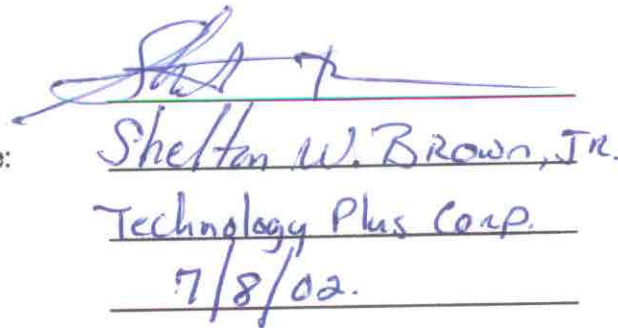 Shelton W. Brown, Jr.
Technology Plus Corp.
7/8/02.